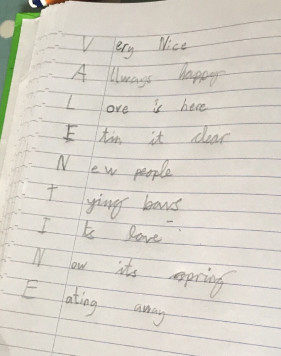 Very Nice
Allways happy
Love is here
Etin it clear
New people
Tying bows
Its love
Now its spring
Eating away